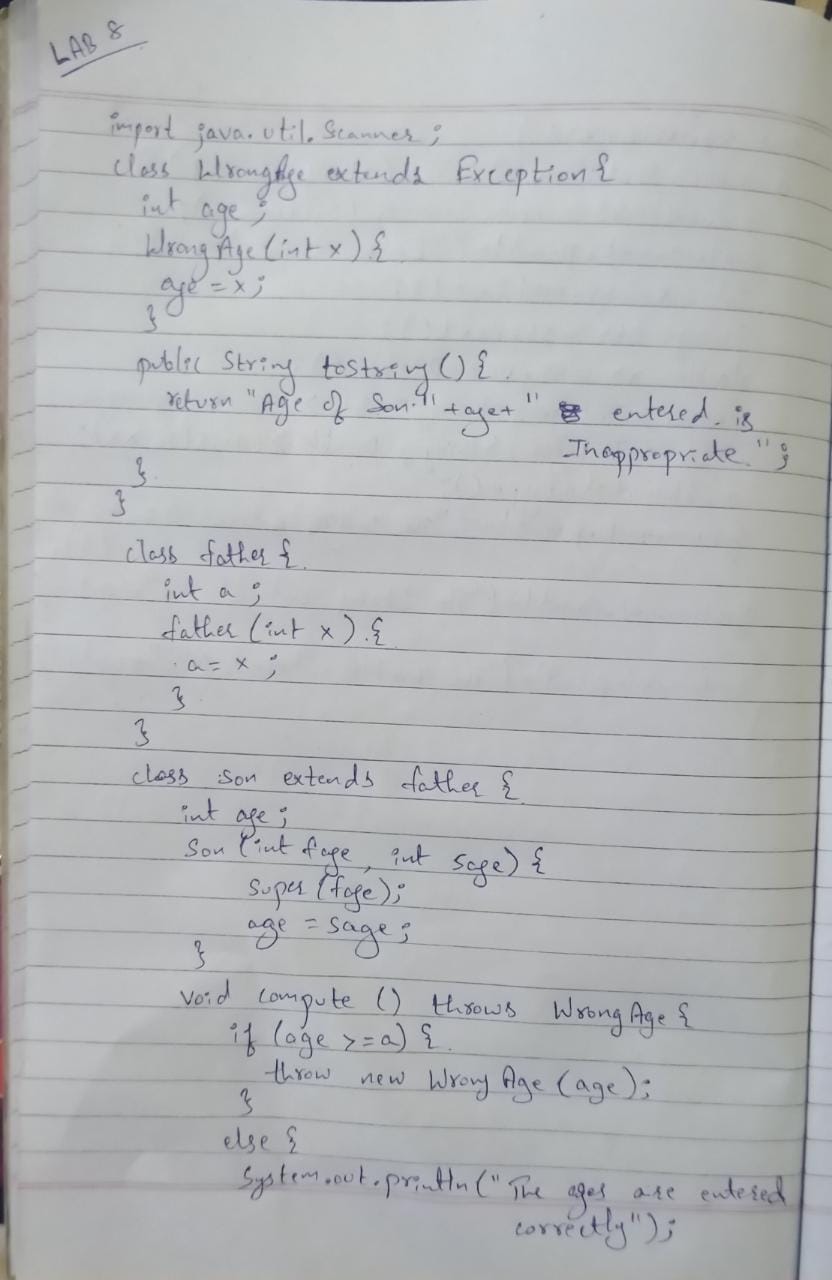 LAB 8
import java.util.Scanner;
class WrongAge extends Exception{
int age;
WrongAge(int x){
age=x;
}
public String toString(){
return "Age of Son:"+age+" entered is
Inappropriate.";
}
}
class father{
int a;
father(int x){
a=x;
}
}
class son extends father{
int age;
Son(int fage, int sage){
super(fage);
age=sage;
}
void compute() throws WrongAge{
if(age>=a){
throw new WrongAge(age);
}
else{
System.out.println("The ages are entered
correctly");